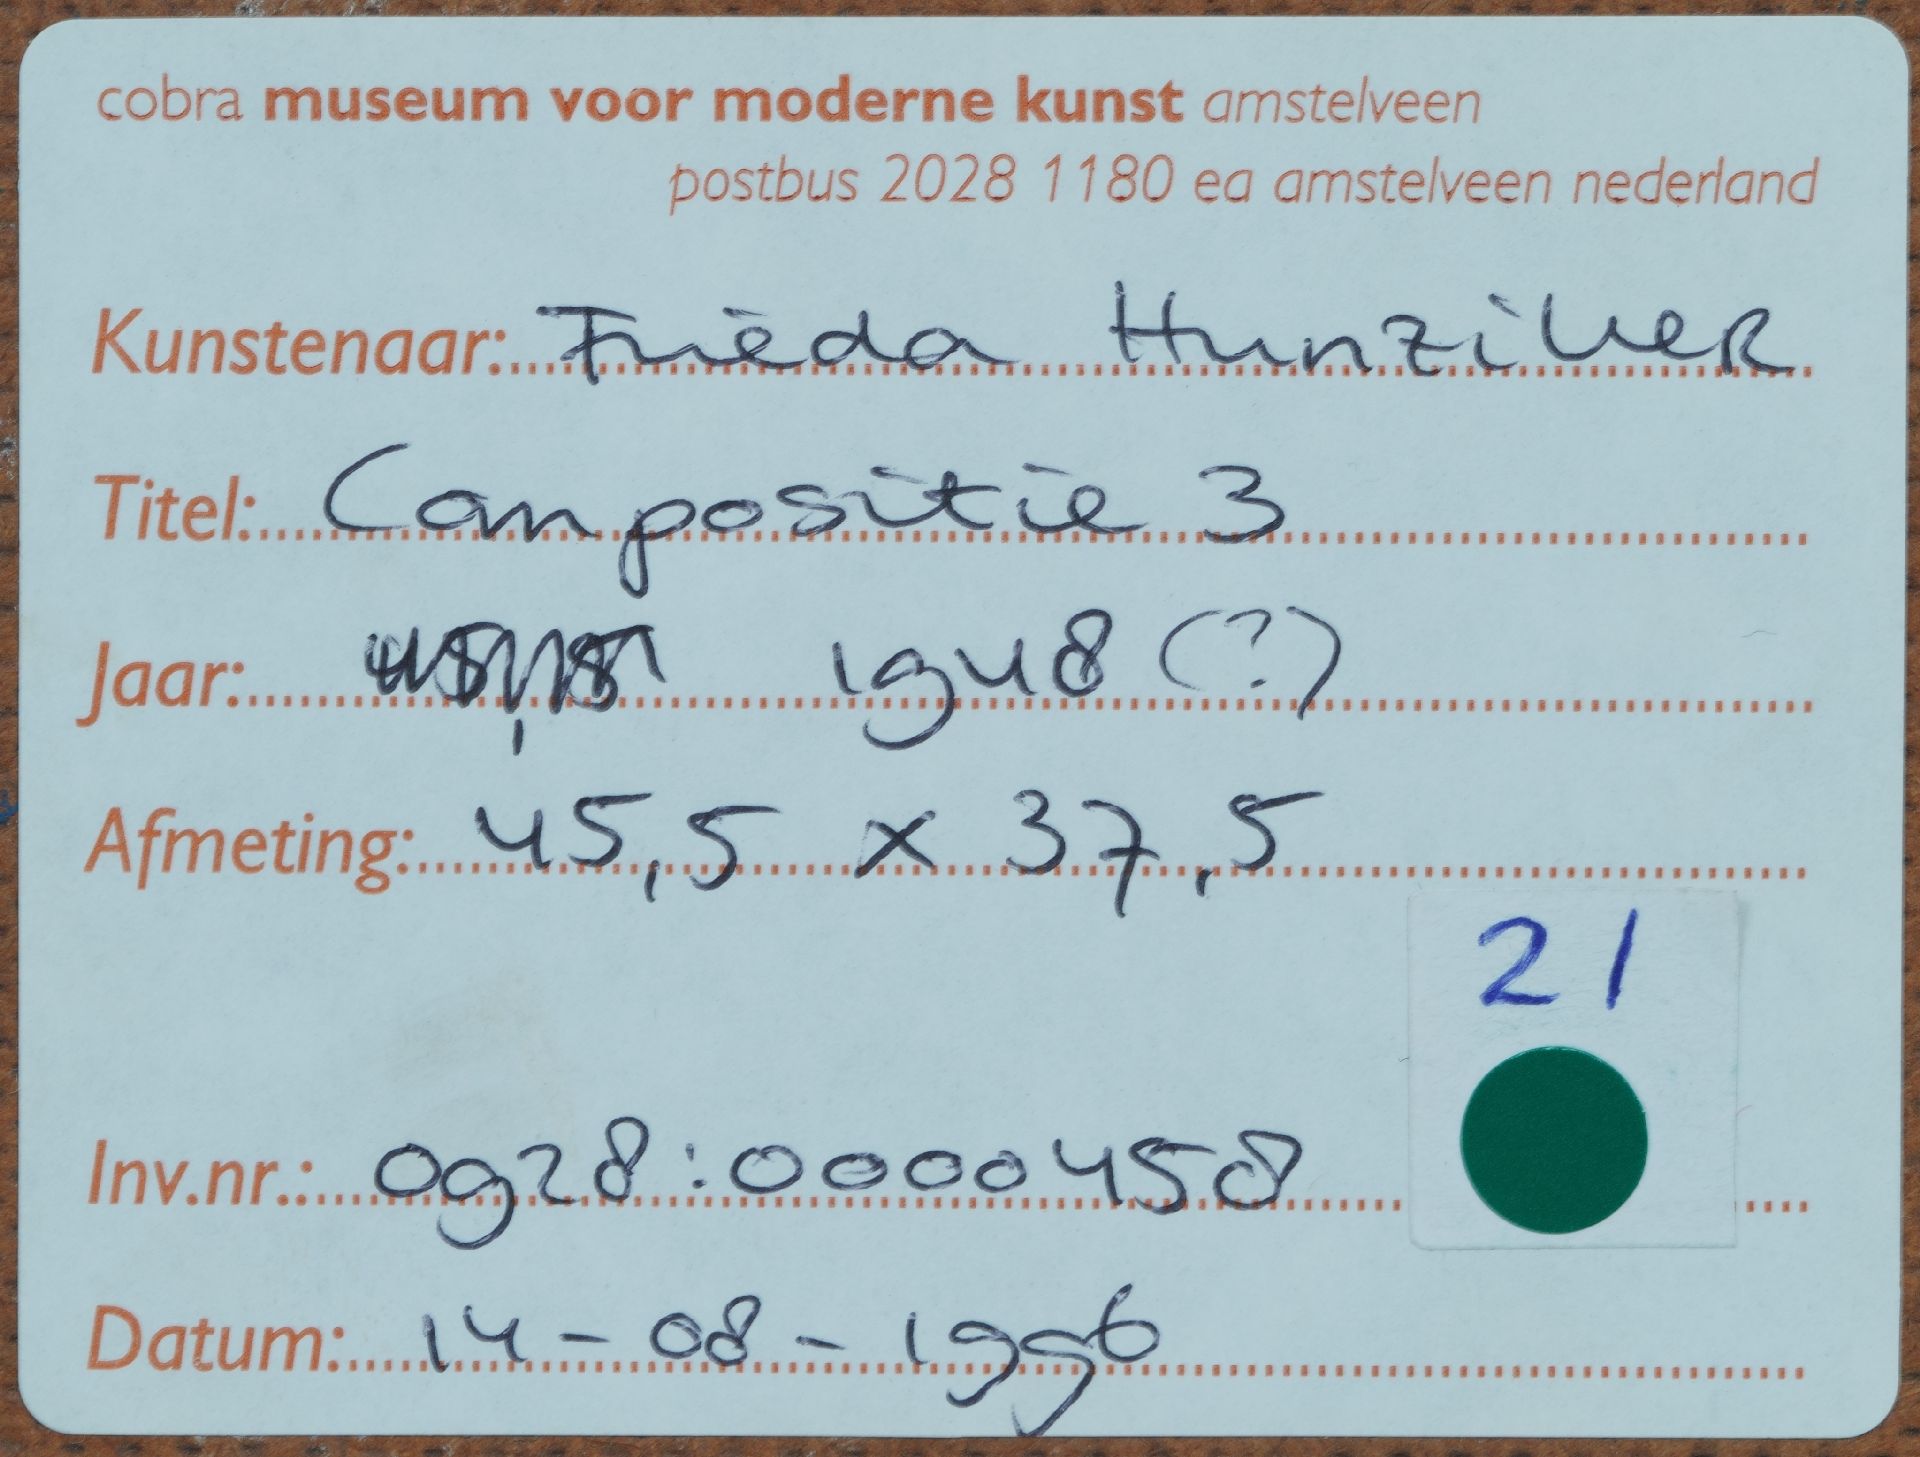 cobra museum voor moderne kunst amstelveen
postbus 2028 1180 ea amstelveen nederland
Kunstenaar: Frieda Hunziker
Titel: Compositie 3
Jaar: 1948 (?)
Afmeting: 45,5 x 37,5
21
Inv.nr.: 0928:0000458
Datum: 14-08-1996